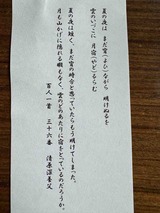 夏の夜は まだ宵(よひ)ながら 明けぬるを
雲のいづこに 月宿(やど)るらむ
夏の夜は短く、まだ宵の時分と思っていたらもう明けてしまった。
月も山かげに隠れる暇もなく、雲のどのあたりに宿をとっているのだろうか。
百人一首 三十六番 清原深養父